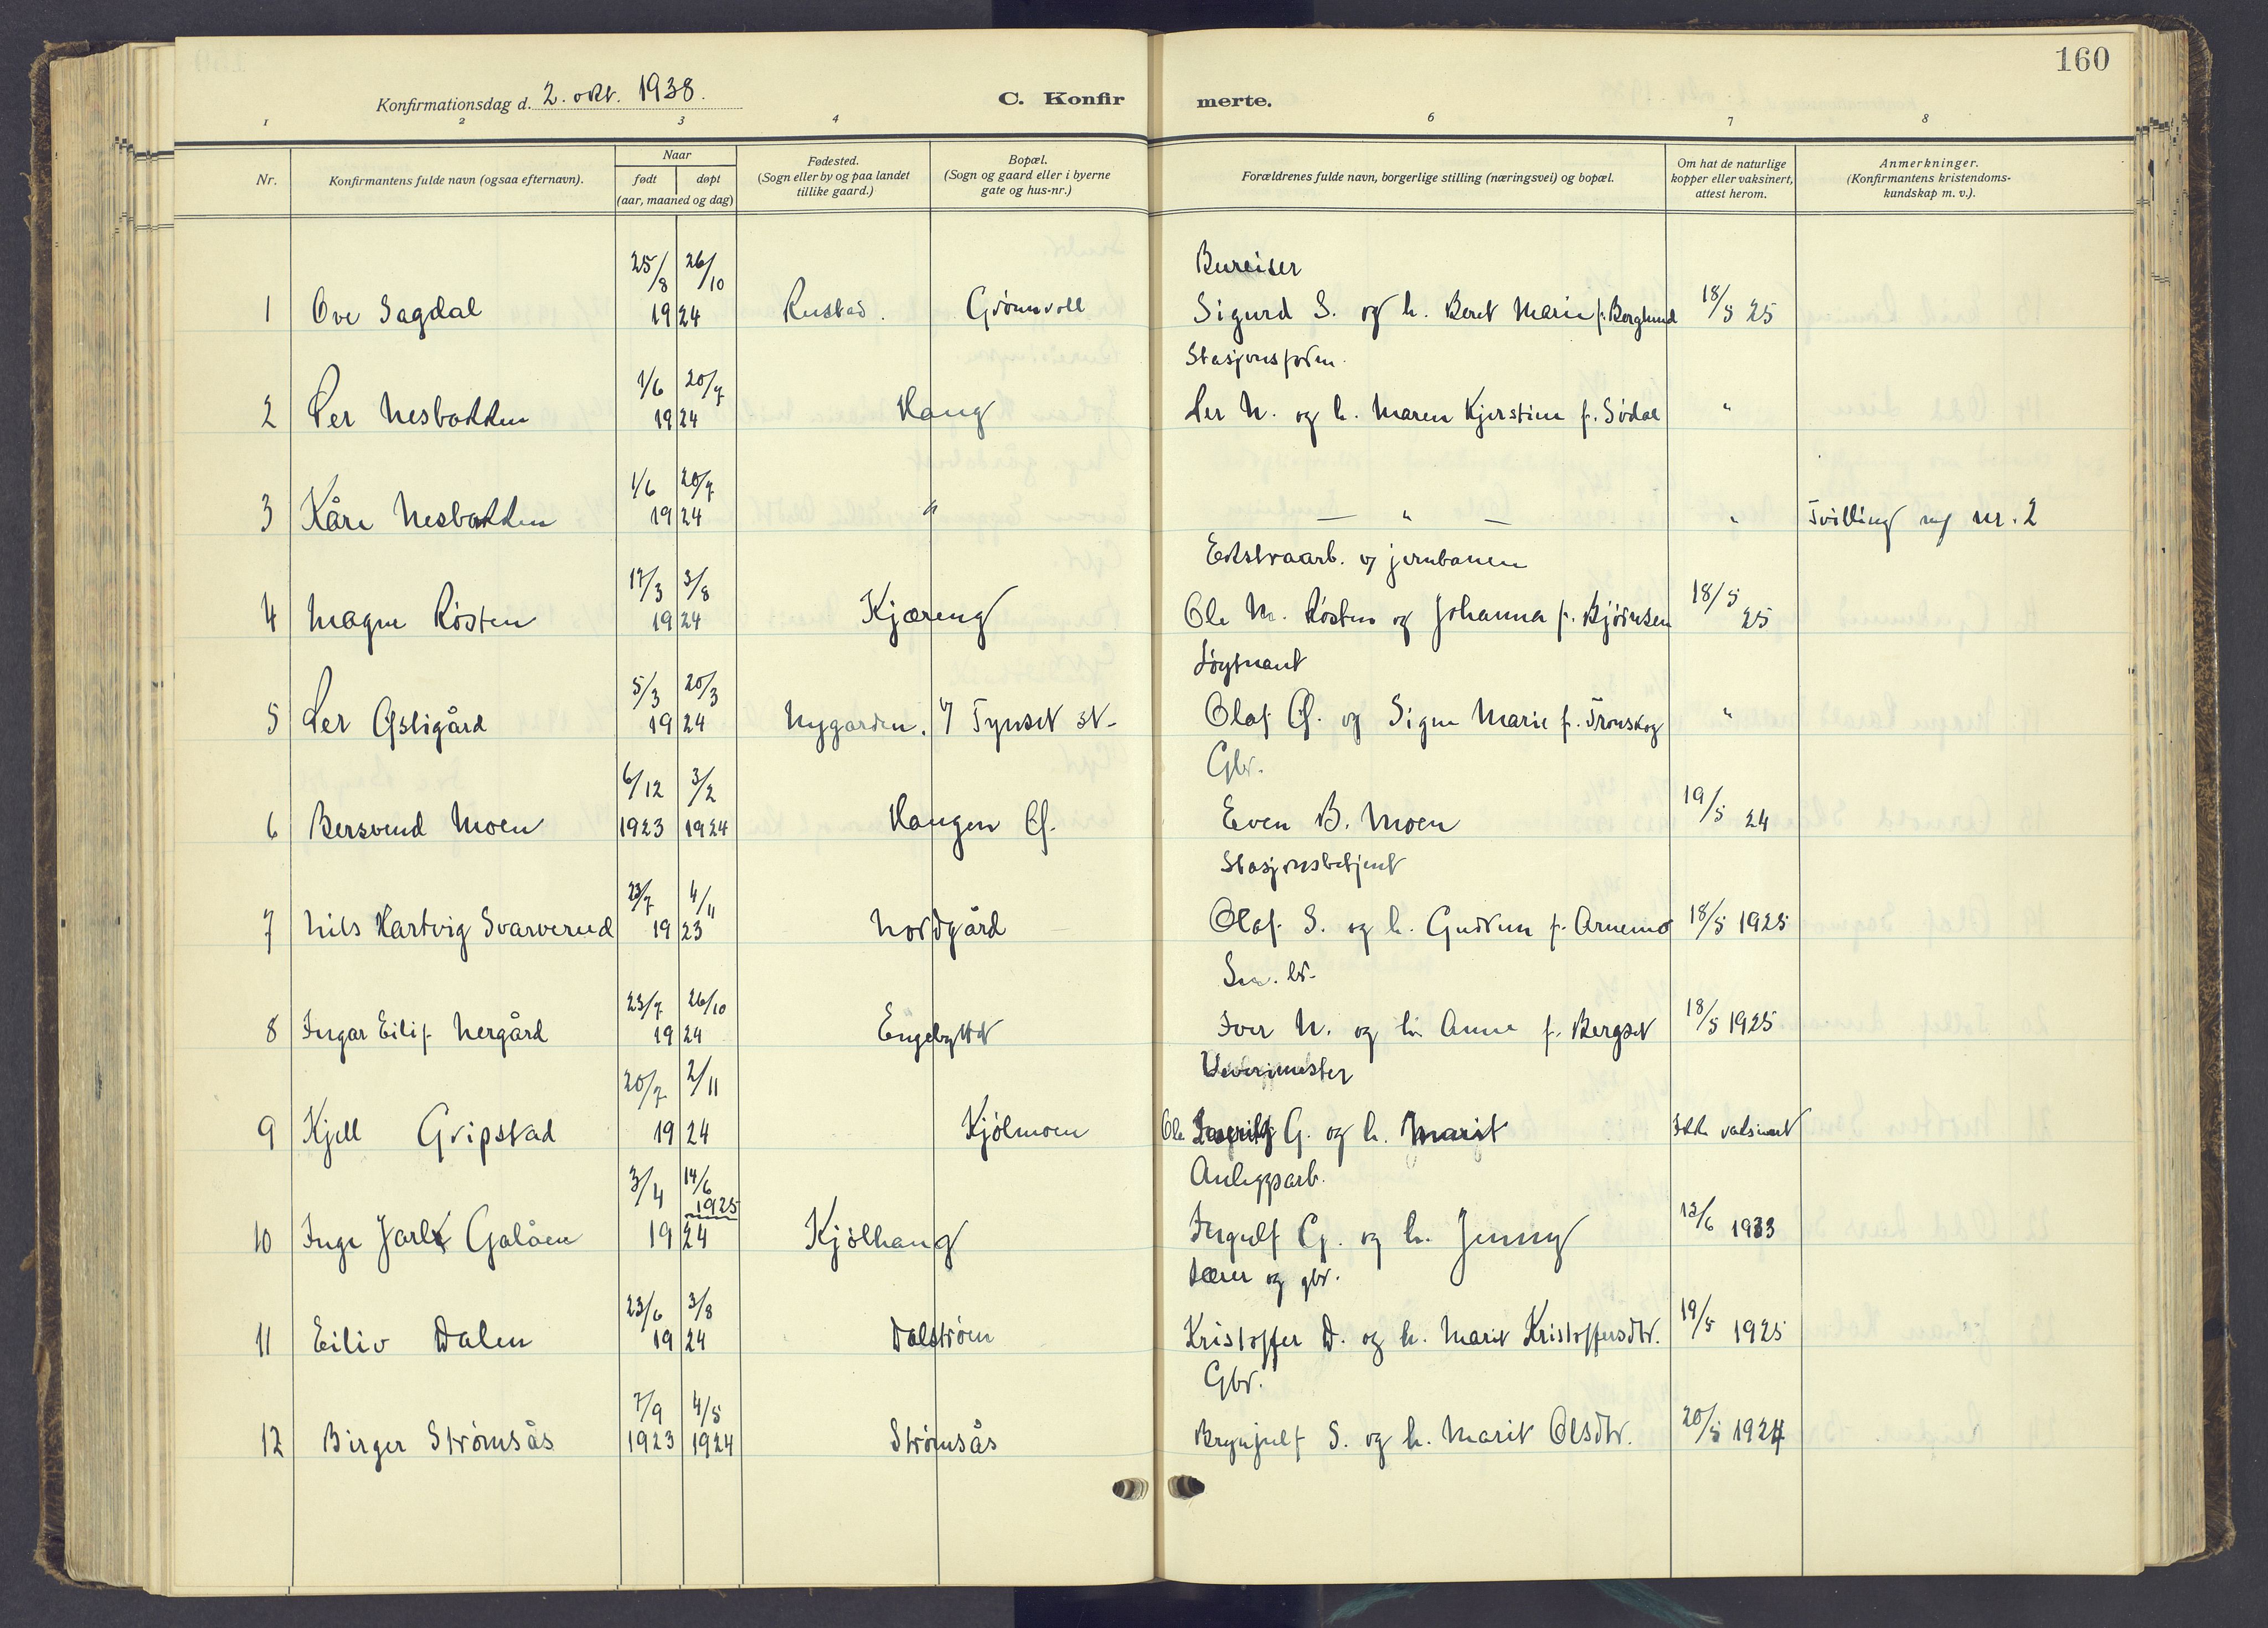 160
Konfirmationsdag d. 2. okt. 1938.
C. Konfir merte.
1 2 3 4 6 7 8
Nr.
Konfirmantens fulde navn (ogsaa efternavn).
Naar
født døpt
(aar, maaned og dag)
Fødested.
(Sogn eller by og paa landet
tillike gaard.)
Bopæl.
(Sogn og gaard eller i byerne
gate og hus-nr.)
Forældrenes fulde navn, borgerlige stilling (næringsvei) og bopæl.
Om hat de naturlige
kopper eller vaksinert,
attest herom.
Anmerkninger.
(Konfirmantens kristendoms-
kundskap m. v.).
25/8 26/10 Bureiser
1 Ove Sagdal 1924 Rustad. Grönnvoll Sigurd S. og h. Beret Marie f. Berglund 18/5 25
Stasjonsform.
1/6 20/7
2 Per Nesbakken 1924 Haug Per N. og h. Maren Kjerstine f. Södal "
1/6 20/7
3 Kåre Nesbakken 1924 " — " — " Tvilling m/ nr. 2
Ekstraarb. v/ jernbanen
17/3 3/8
4 Magne Røsten 1924 Kjæreng Ole M. Røsten og Johanna f. Björnsen 18/5 25
Løytnant
5/3 20/3
5 Per Åsligård 1924 Nygarden. v/ Tynset st. Olaf Å. og Signe Marie f. Tronskog "
Gbr.
6/12 3/2
6 Bersvend Moen 1923 1924 Haugen Å. Even B. Moen 19/5 24
Stasjonsbetjent
23/7 4/11
7 Nils Hartvig Svarverud 1923 Nordgård Olaf S. og h. Gudrun f. Arnemo 18/5 1925
Sm. br.
23/7 26/10
8 Ingar Eilif Nergård 1924 Engebytte Iver N. og h. Anne f. Bergset 18/5 1925
Veverimester
20/7 2/11
9 Kjell Gripstad 1924 Kjölmoen Ole G. og h. Marit Ikke vaksinert
Anleggsarb.
3/4 14/6 1925
10 Inge Jarl Galåen 1924 Kjölhaug Ingulf G. og h. Jenny 13/6 1933
Lærer og gbr.
23/6 3/8
11 Eiliv Dalen 1924 Dalström Kristoffer D. og h. Marit Kristoffersdtr. 19/5 1925
Gbr.
7/9 4/5
12 Birger Strömsås 1923 1924 Strömsås Brynjulf S. og h. Marit Olsdtr. 20/5 1924